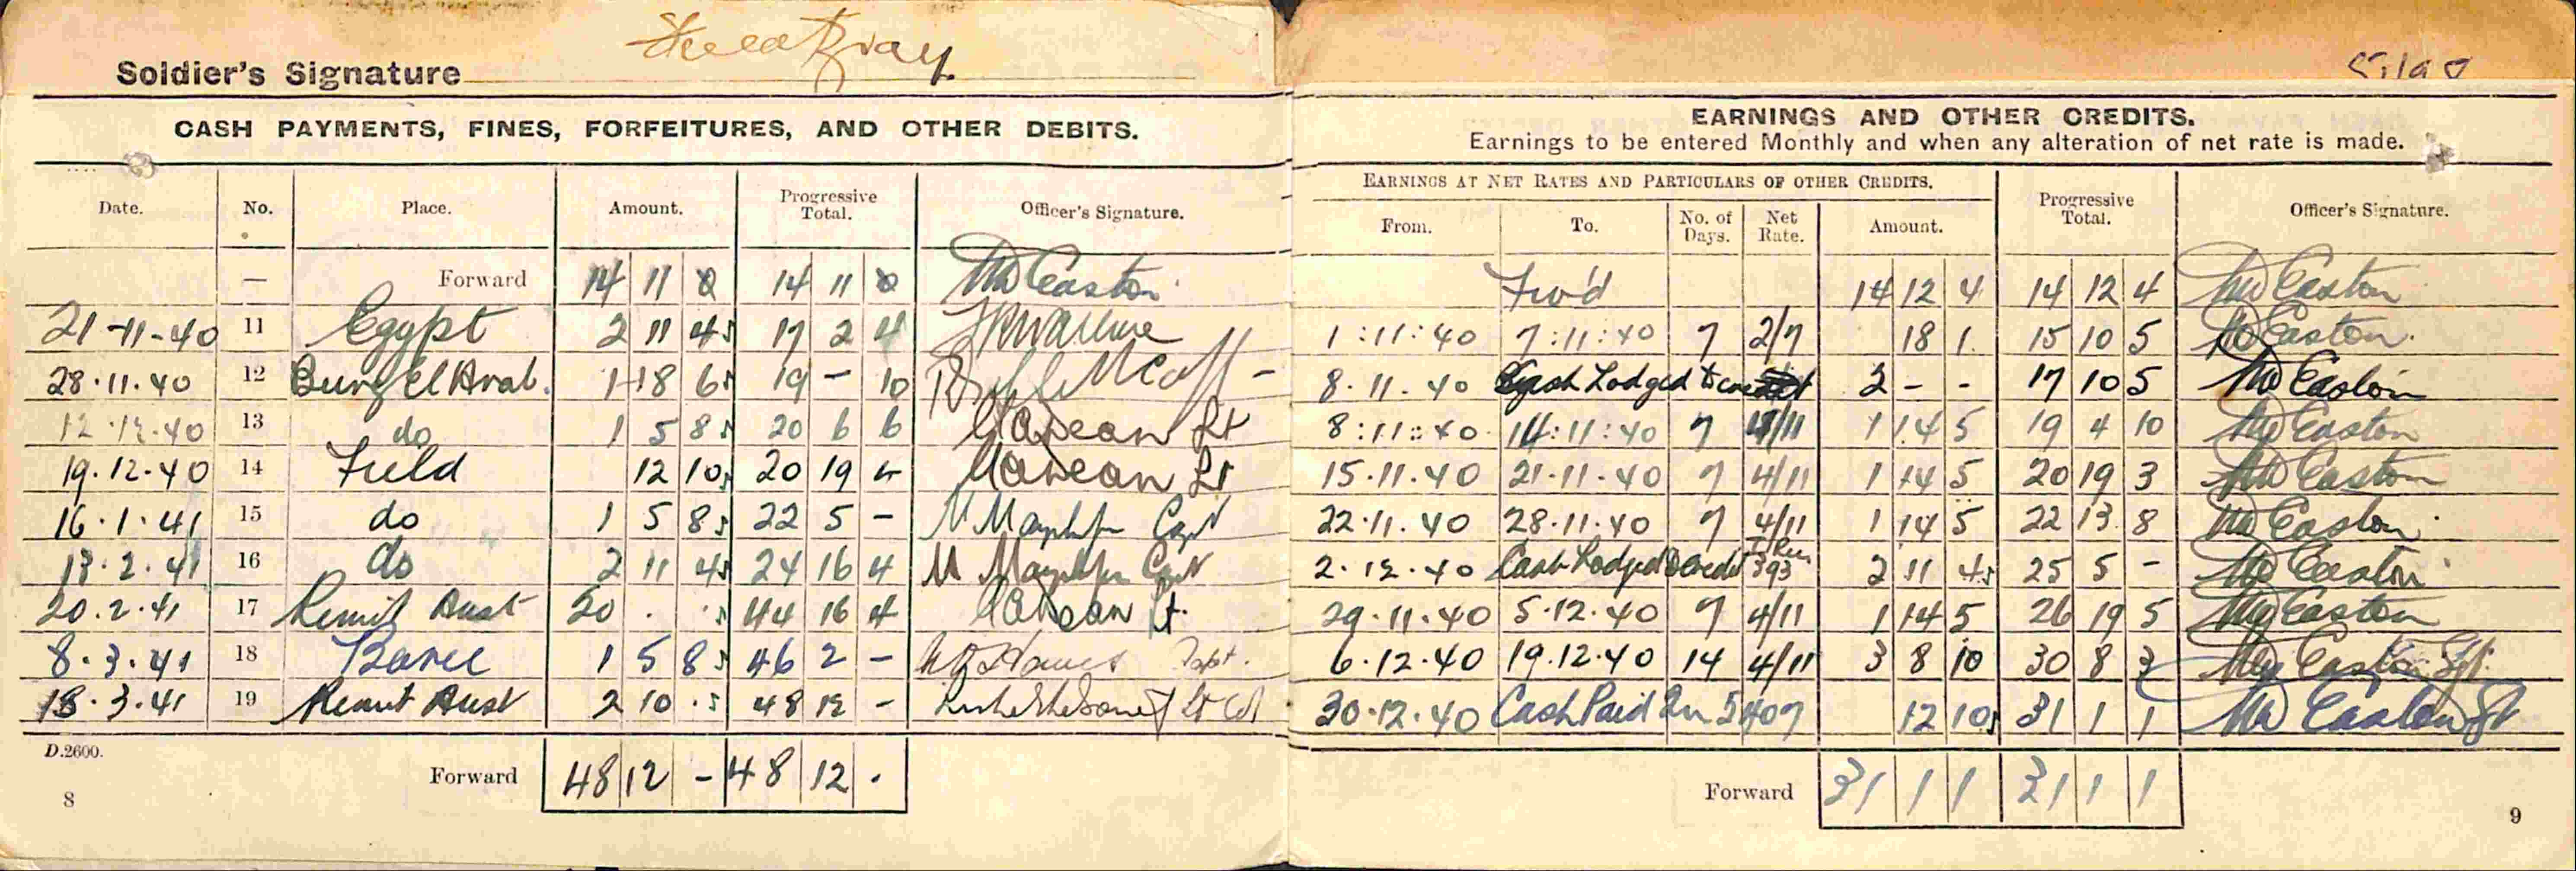 Soldier's Signature
CASH PAYMENTS, FINES, FORFEITURES, AND OTHER DEBITS.
Date. No. Place. Amount. Progressive Total. Officer's Signature.
— Forward 14 11 0 14 11 0 Easton
21-11-40 11 Egypt 2 11 4 17 2 4
28.11.40 12 Burg El Arab. 1 18 6 19 – 10
12.12.40 13 do 1 5 8 20 6 6 Lt
19.12.40 14 Field 12 10 20 19 4 Lt
16.1.41 15 do 1 5 8 22 5 – Capt
13.2.41 16 do 2 11 4 24 16 4 Capt
20.2.41 17 Remit Aust 20 . . 44 16 4 Lt.
8.3.41 18 1 5 8 46 2 – Capt.
18.3.41 19 Remit Aust 2 10 . 48 12 – Lt Col
D.2600.
Forward 48 12 – 48 12 .
8
EARNINGS AND OTHER CREDITS.
Earnings to be entered Monthly and when any alteration of net rate is made.
EARNINGS AT NET RATES AND PARTICULARS OF OTHER CREDITS.
From. To. No. of Days. Net Rate. Amount. Progressive Total. Officer's Signature.
Fwd 14 12 4 14 12 4 Easton
1:11:40 7:11:40 7 2/7 18 1 15 10 5 Easton.
8.11.40 Cash Lodged to credit 2 – – 17 10 5 Easton
8:11:40 14:11:40 7 4/11 1 14 5 19 4 10 Easton
15.11.40 21.11.40 7 4/11 1 14 5 20 19 3 Easton
22.11.40 28.11.40 7 4/11 1 14 5 22 13 8 Easton
2.12.40 Cash Lodged to Credit 393 2 11 4 25 5 – Easton
29.11.40 5.12.40 7 4/11 1 14 5 26 19 5 Easton
6.12.40 19.12.40 14 4/11 3 8 10 30 8 3 Easton Sgt
30.12.40 Cash Paid In 5407 12 10 31 1 1 Easton Sgt
Forward 31 1 1 31 1 1
9